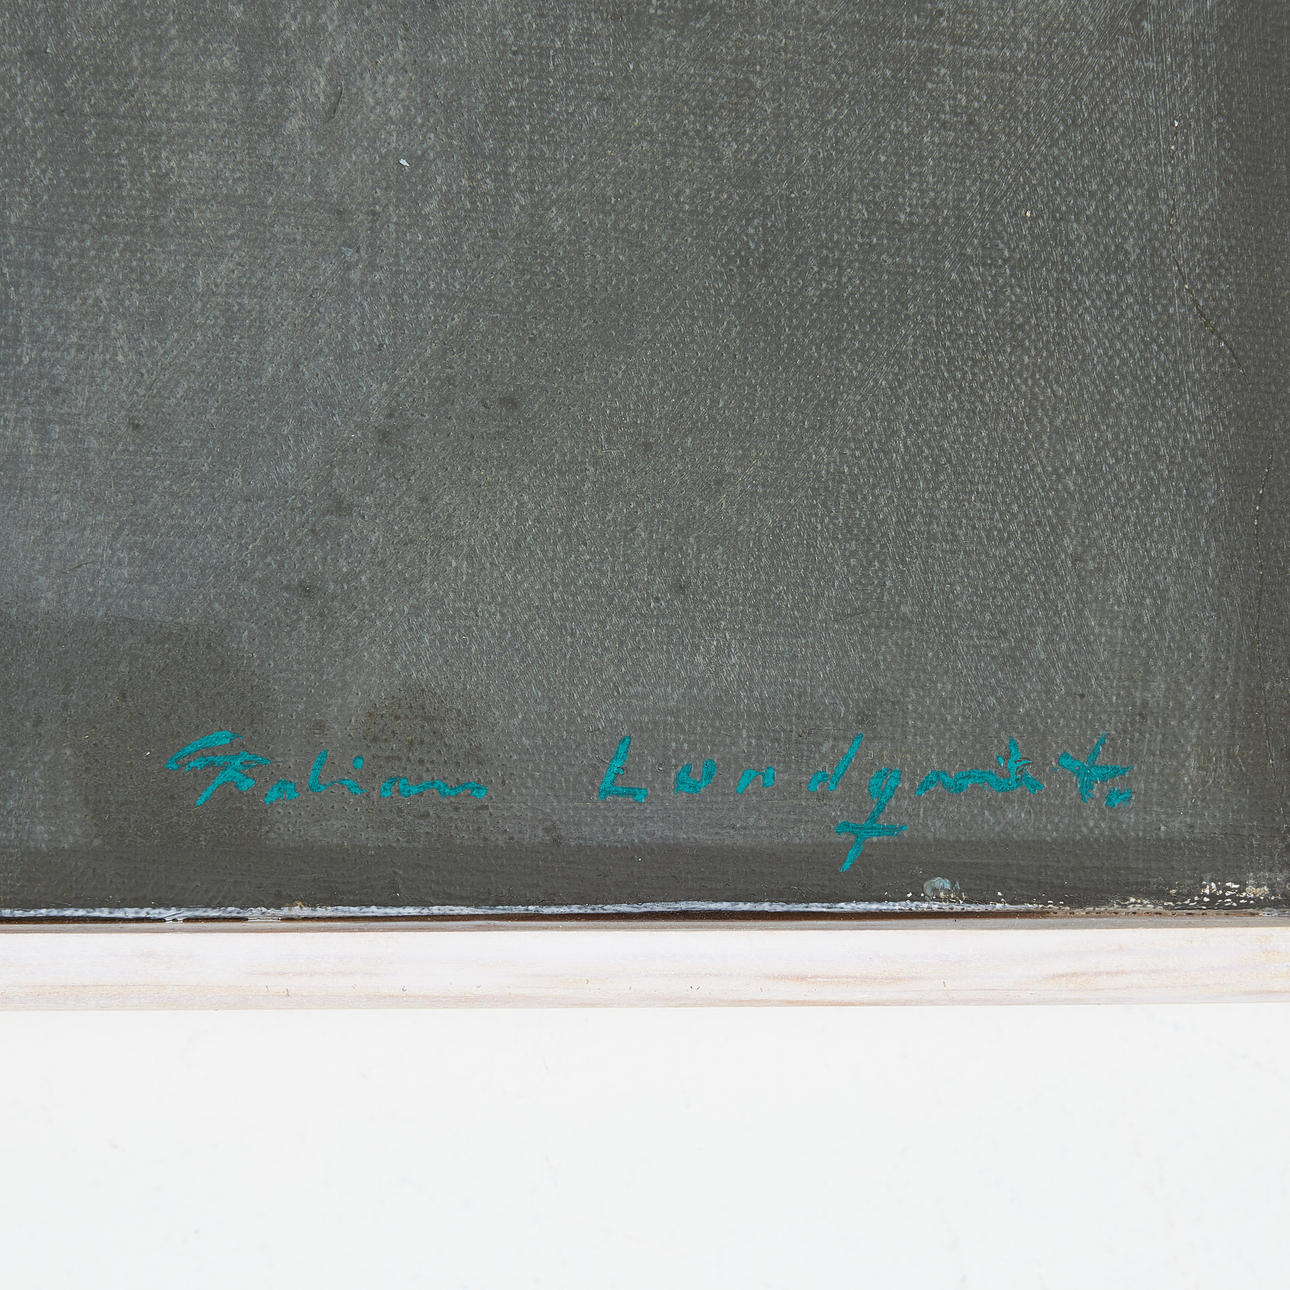 Fabian Lundqvist.